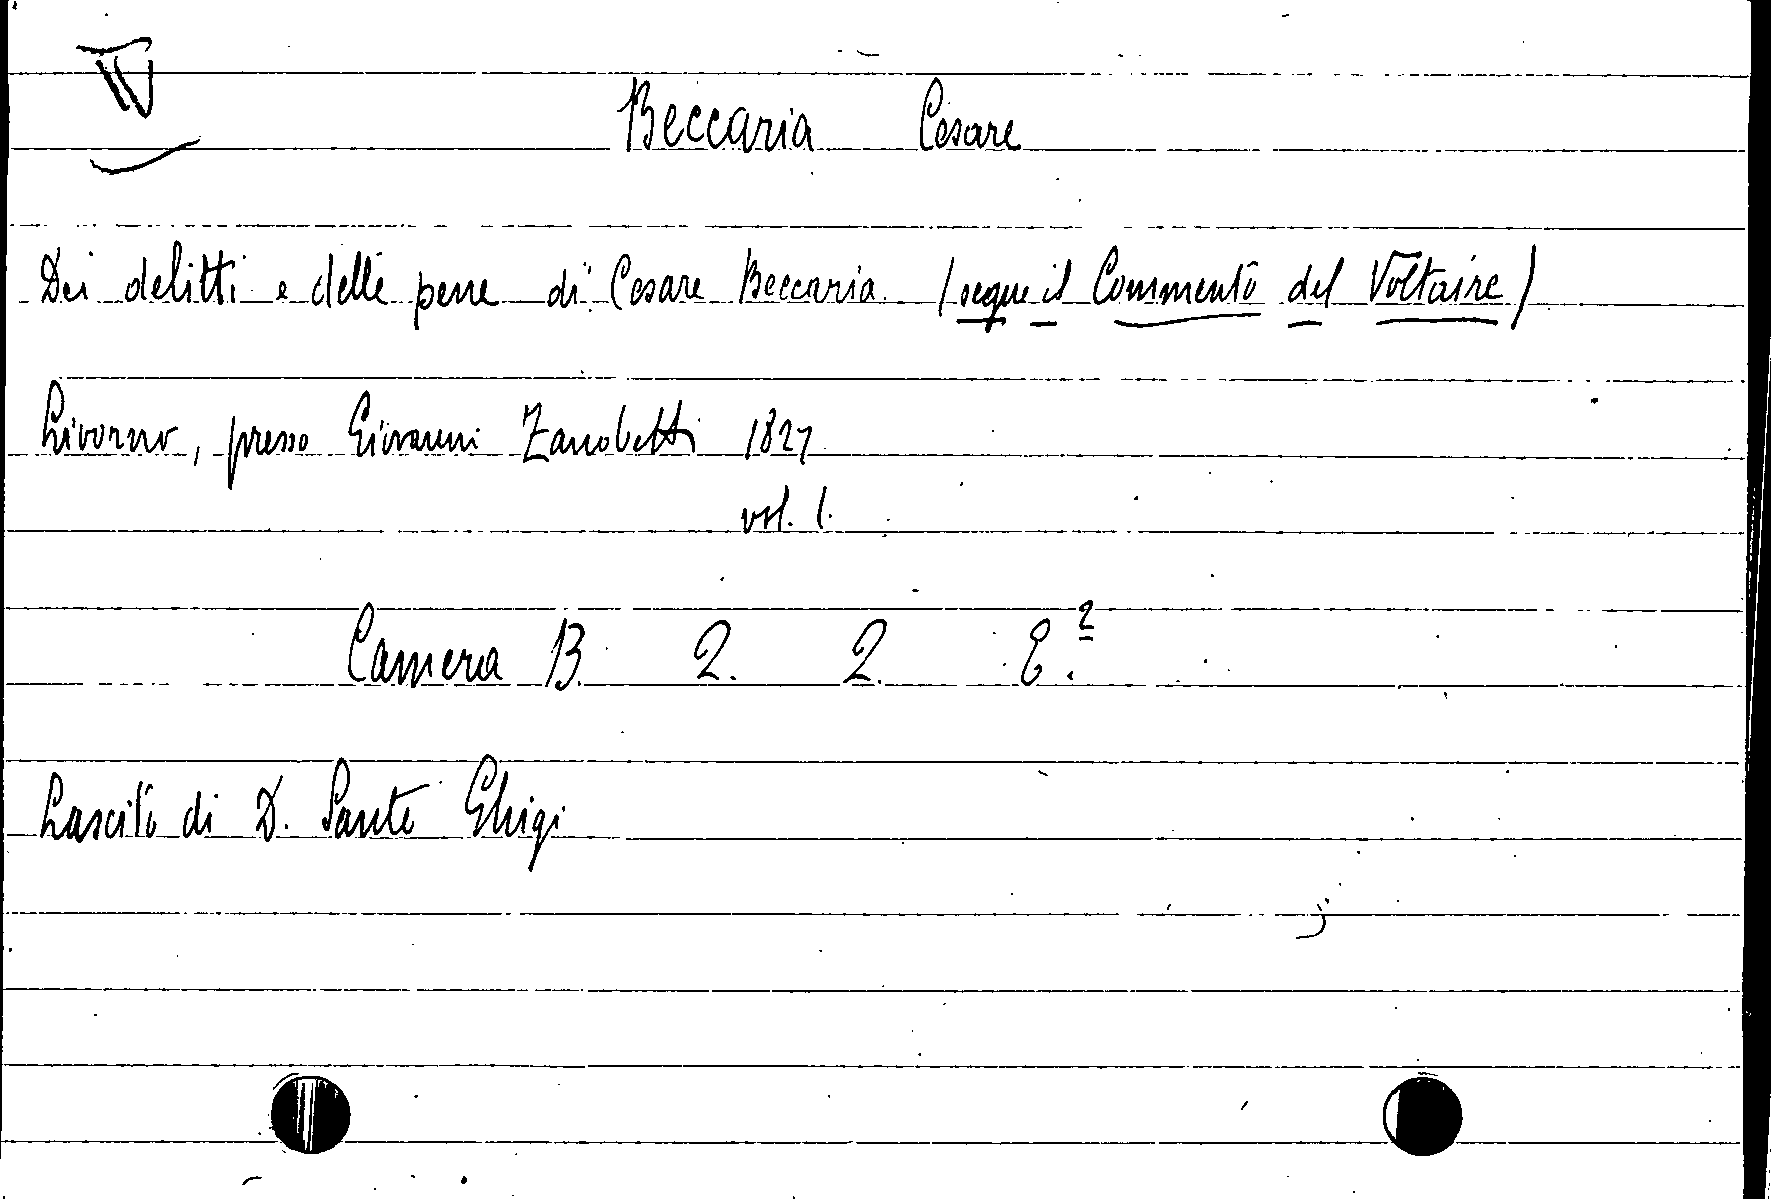 IV
Beccaria Cesare
Dei delitti e delle pene di Cesare Beccaria (segue il Commento del Voltaire)
Livorno, presso Giovanni Zanobetti 1827
vol. 1.
Camera B. 2. 2. E.²
Lascito di D. Sante Ghigi